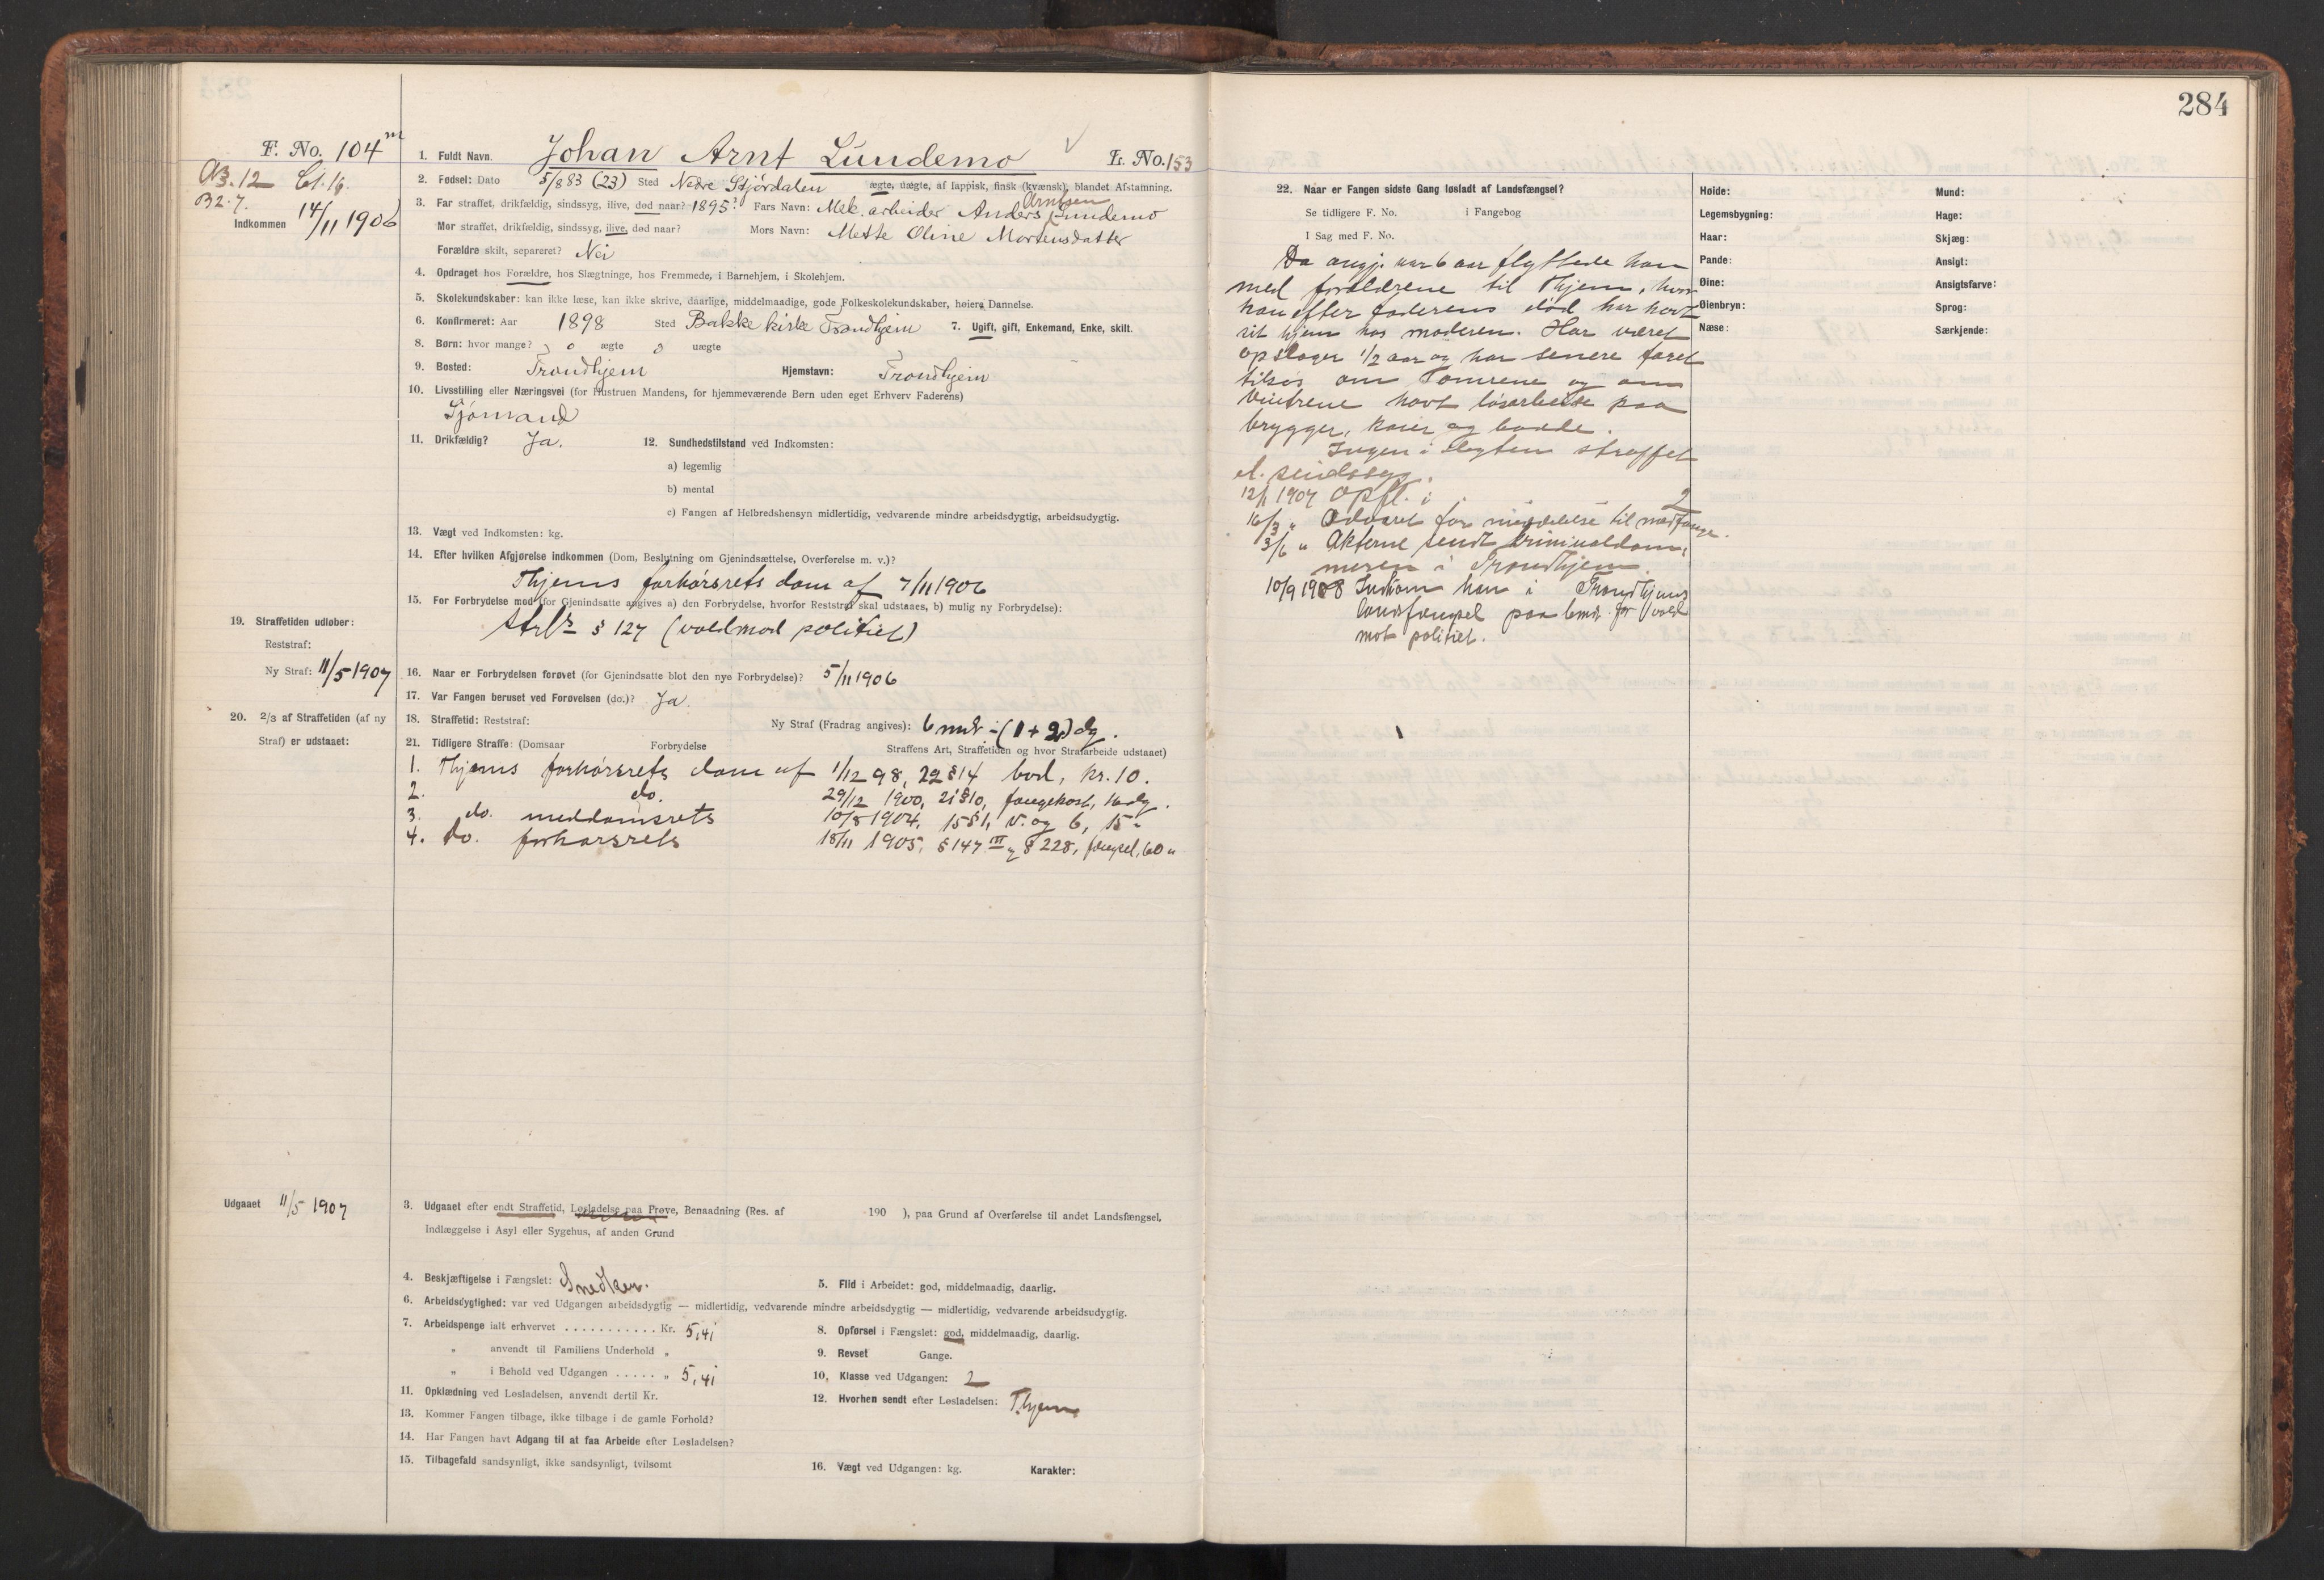 F. No. 104 m
A3.12 Cl. 16.
B2.7.
Indkommen 14/11 1906
1. Fuldt Navn. Johan Arnt Lundemo L. No. 153
2. Fødsel: Dato 5/8 83 (23) Sted Nedre Stjørdalen ægte, uægte, af lappisk, finsk (kvænsk), blandet Afstamning.
3. Far straffet, drikfældig, sindssyg, ilive, død naar? 1895? Fars Navn: Mek. arbeider Anders Arntsen Lundemo
Mor straffet, drikfældig, sindssyg, ilive, død naar? Mors Navn: Mette Oline Mortensdatter
Forældre skilt, separeret? Nei
4. Opdraget hos Forældre, hos Slægtninge, hos Fremmede, i Barnehjem, i Skolehjem.
5. Skolekundskaber: kan ikke læse, kan ikke skrive, daarlige, middelmaadige, gode Folkeskolekundskaber, høiere Dannelse.
6. Konfirmeret: Aar 1898 Sted Bakke kirke Trondhjem 7. Ugift, gift, Enkemand, Enke, skilt.
8. Børn: hvor mange? 0 ægte 0 uægte
9. Bosted: Trondhjem Hjemstavn: Trondhjem
10. Livsstilling eller Næringsvei (for Hustruen Mandens, for hjemmeværende Børn uden eget Erhverv Faderens)
Sjømand
11. Drikfældig? Ja. 12. Sundhedstilstand ved Indkomsten:
a) legemlig
b) mental
c) Fangen af Helbredshensyn midlertidig, vedvarende mindre arbeidsdygtig, arbeidsudygtig.
13. Vægt ved Indkomsten: kg.
14. Efter hvilken Afgjørelse indkommen (Dom, Beslutning om Gjenindsættelse, Overførelse m. v.)?
Thjems forhørsrets dom af 7/11 1906
15. For Forbrydelse mod (for Gjenindsatte angives a) den Forbrydelse, hvorfor Reststraf skal udstaaes, b) mulig ny Forbrydelse):
§ 127 (vold mod politiet)
19. Straffetiden udløber:
Reststraf:
Ny Straf: 11/5 1907
16. Naar er Forbrydelsen forøvet (for Gjenindsatte blot den nye Forbrydelse)? 5/11 1906
17. Var Fangen beruset ved Forøvelsen (do.)? Ja.
20. 2/3 af Straffetiden (af ny
Straf) er udstaaet:
18. Straffetid: Reststraf: Ny Straf (Fradrag angives): 6 mdr ÷ (1 + 2) dg.
21. Tidligere Straffe: (Domsaar Forbrydelse Straffens Art, Straffetiden og hvor Strafarbeide udstaaet)
1. Thjems forhørsrets dom af 1/12 98, 22 § 14 bod, kr. 10.
2. do. 29/12 1900, 21 § 10, fangekost, 16 dg.
3. do. meddomsrets 10/8 1904, 15 § 1, 5. og 6, 15 "
4. do. forhørsrets 18/11 1905, § 147 III og § 228, fængsel, 60 "
Udgaaet 11/5 1907
3. Udgaaet efter endt Straffetid, Løsladelse paa Prøve, Benaadning (Res. af 190 ), paa Grund af Overførelse til andet Landsfængsel,
Indlæggelse i Asyl eller Sygehus, af anden Grund
4. Beskjæftigelse i Fængslet: Snedker. 5. Flid i Arbeidet: god, middelmaadig, daarlig.
6. Arbeidsdygtighed: var ved Udgangen arbeidsdygtig — midlertidig, vedvarende mindre arbeidsdygtig — midlertidig, vedvarende arbeidsudygtig.
7. Arbeidspenge ialt erhvervet . . . . . . . . . . . Kr. 5,41 8. Opførsel i Fængslet: god, middelmaadig, daarlig.
" anvendt til Familiens Underhold " 9. Revset Gange.
" i Behold ved Udgangen . . . . . " 5,41 10. Klasse ved Udgangen: 2
11. Opklædning ved Løsladelsen, anvendt dertil Kr. 12. Hvorhen sendt efter Løsladelsen: Thjem
13. Kommer Fangen tilbage, ikke tilbage i de gamle Forhold?
14. Har Fangen havt Adgang til at faa Arbeide efter Løsladelsen?
15. Tilbagefald sandsynligt, ikke sandsynligt, tvilsomt 16. Vægt ved Udgangen: kg. Karakter:
284
22. Naar er Fangen sidste Gang løsladt af Landsfængsel?
Se tidligere F. No. i Fangebog
I Sag med F. No.
Da angj. var 6 aar flyttede han
med forældrene til Thjem, hvor
han efter faderens død har havt
sit hjem hos moderen. Har været
opslager 1/2 aar og har senere faret
tilsjøs om somrene og om
vintrene havt løsarbeide paa
brygger, kaier og baade.
Ingen i slegten straffet
el. sindssyg.
12/1 1907 Opfl. i 2
16/3 " Advaret for meddelelse til medfange.
3/6 " Akterne sendt kriminaldom-
meren i Trondhjem.
10/9 1908 Indkom han i Trondhjems
landsfængsel paa 6 mdr. for vold
mot politiet.
Høide:
Legemsbygning:
Haar:
Pande:
Øine:
Øienbryn:
Næse:
Mund:
Hage:
Skjæg:
Ansigt:
Ansigtsfarve:
Sprog:
Særkjende: